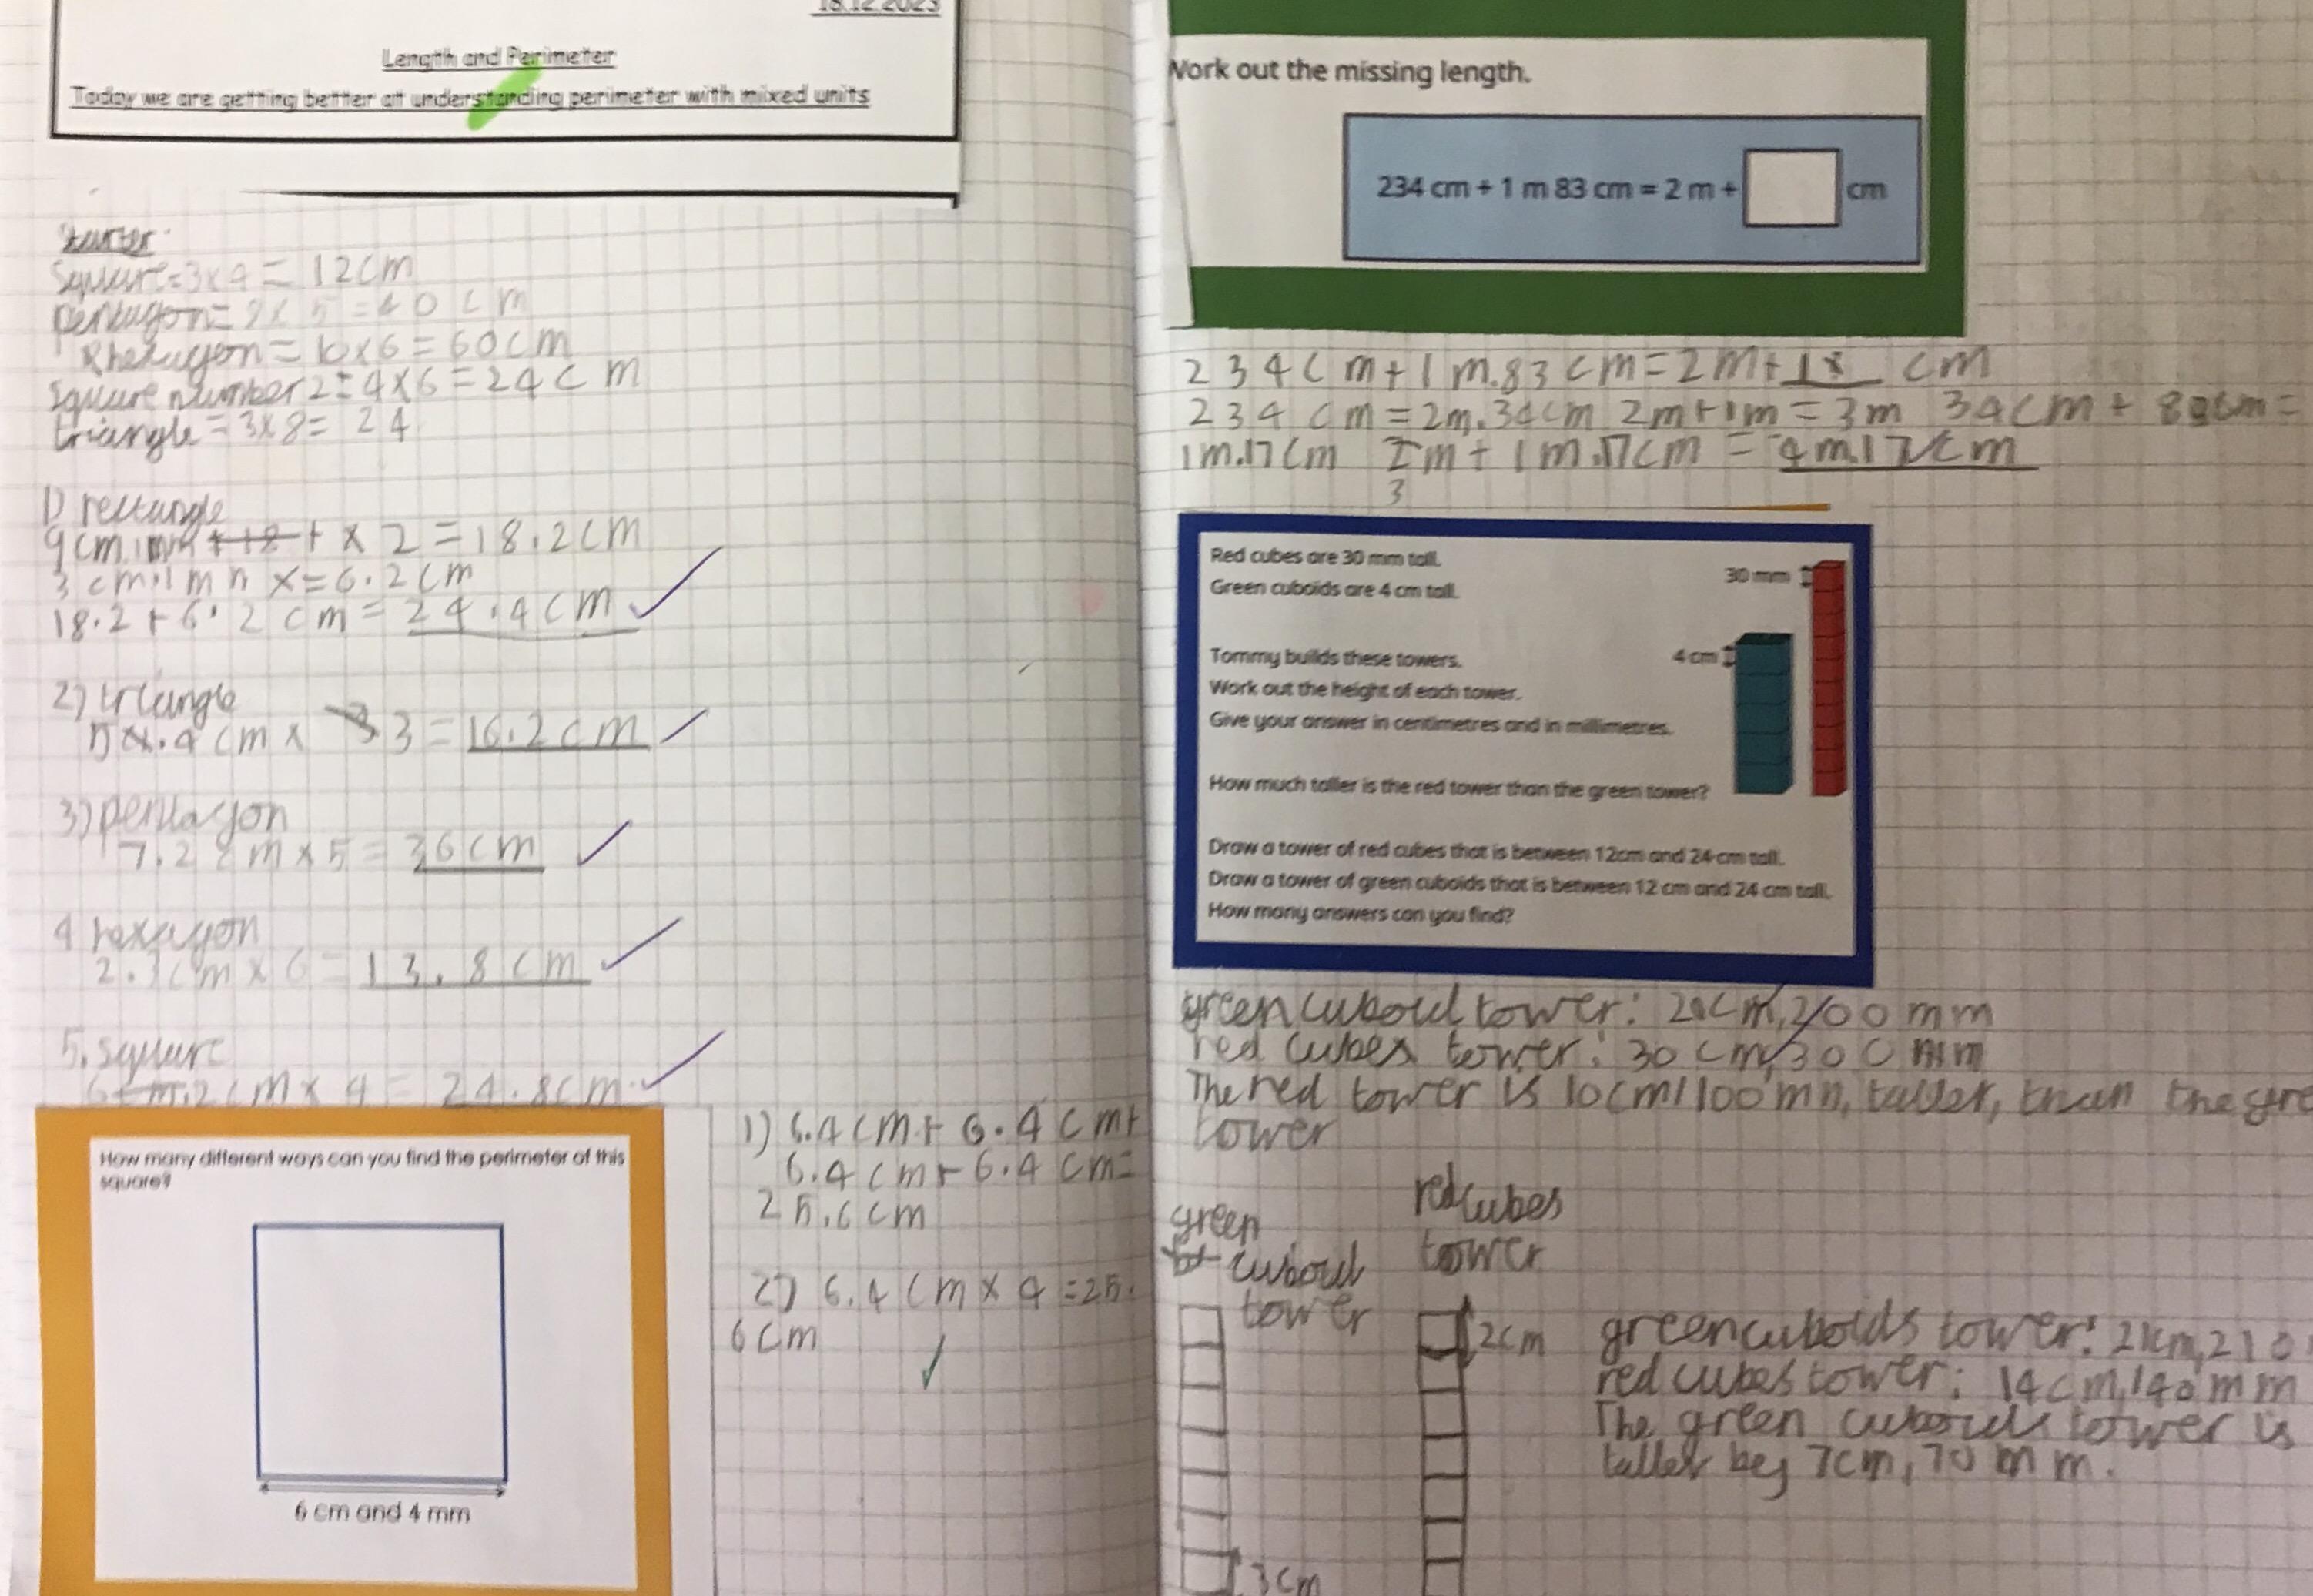 18.12.2023
Length and Perimeter
Today we are getting better at understanding perimeter with mixed units
Starter
Square = 3x4 = 12cm
Pentagon = 8x5 = 40cm
hexagon = 10x6 = 60cm
Square number 2 = 4x6 = 24cm
triangle = 3x8 = 24
1) rectangle
9cm.1mm + x 2 = 18.2cm
3cm.1mm x = 6.2cm
18.2 + 6.2cm = 24.4cm
2) triangle
5.4cm x 3 = 16.2cm
3) pentagon
7.2cm x 5 = 36cm
4 hexagon
2.3cm x 6 = 13.8cm
5. square
6.2cm x 4 = 24.8cm
How many different ways can you find the perimeter of this
square?
6 cm and 4 mm
1) 6.4cm + 6.4cm +
6.4cm + 6.4cm =
25.6cm
2) 6.4cm x 4 = 25.
6cm
Work out the missing length.
234 cm + 1 m 83 cm = 2 m + cm
234cm + 1m.83cm = 2m + cm
234cm = 2m.34cm 2m + 1m = 3m 34cm + 83cm =
1m.17cm m + 1m.17cm = 4m.17cm
3
Red cubes are 30 mm tall.
Green cuboids are 4 cm tall.
30 mm
4 cm
Tommy builds these towers.
Work out the height of each tower.
Give your answer in centimetres and in millimetres.
How much taller is the red tower than the green tower?
Draw a tower of red cubes that is between 12cm and 24 cm tall.
Draw a tower of green cuboids that is between 12 cm and 24 cm tall.
How many answers can you find?
green cuboid tower: 20cm, 200mm
red cubes tower: 30cm, 300mm
The red tower is 10cm/100mm, taller, than the gre
tower
green
cuboid
tower
red cubes
tower
2cm
3cm
green cuboids tower: 21cm, 210
red cubes tower: 14cm, 140mm
The green cuboids tower is
taller bey 7cm, 70mm.